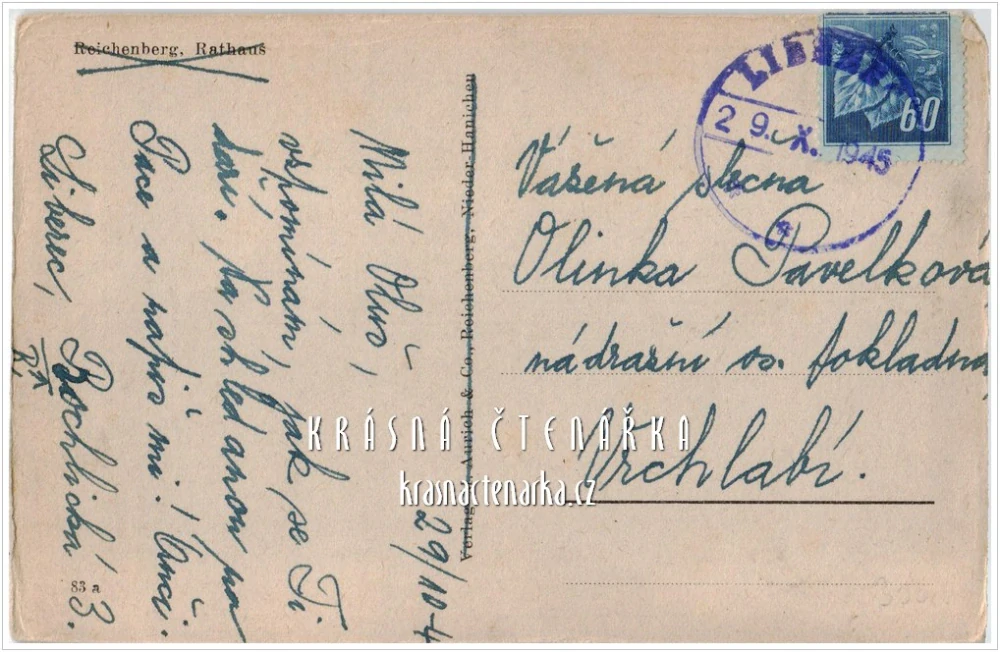 Reichenberg, Rathaus
LIBEREC
29. X. 1945
60
Milá Oluš,
vzpomínám, jak se Ti
daří. Na shledanou
a napiš mi!
Liberec, Rochlická 3.
29/10-4
83 a
Verlag: Aurich & Co., Reichenberg, Nieder-Hanichen
Vážená slečna
Olinka Pavelková
nádražní os. pokladna
Vrchlabí.
KRÁSNÁ ČTENÁŘKA
krasnactenarka.cz